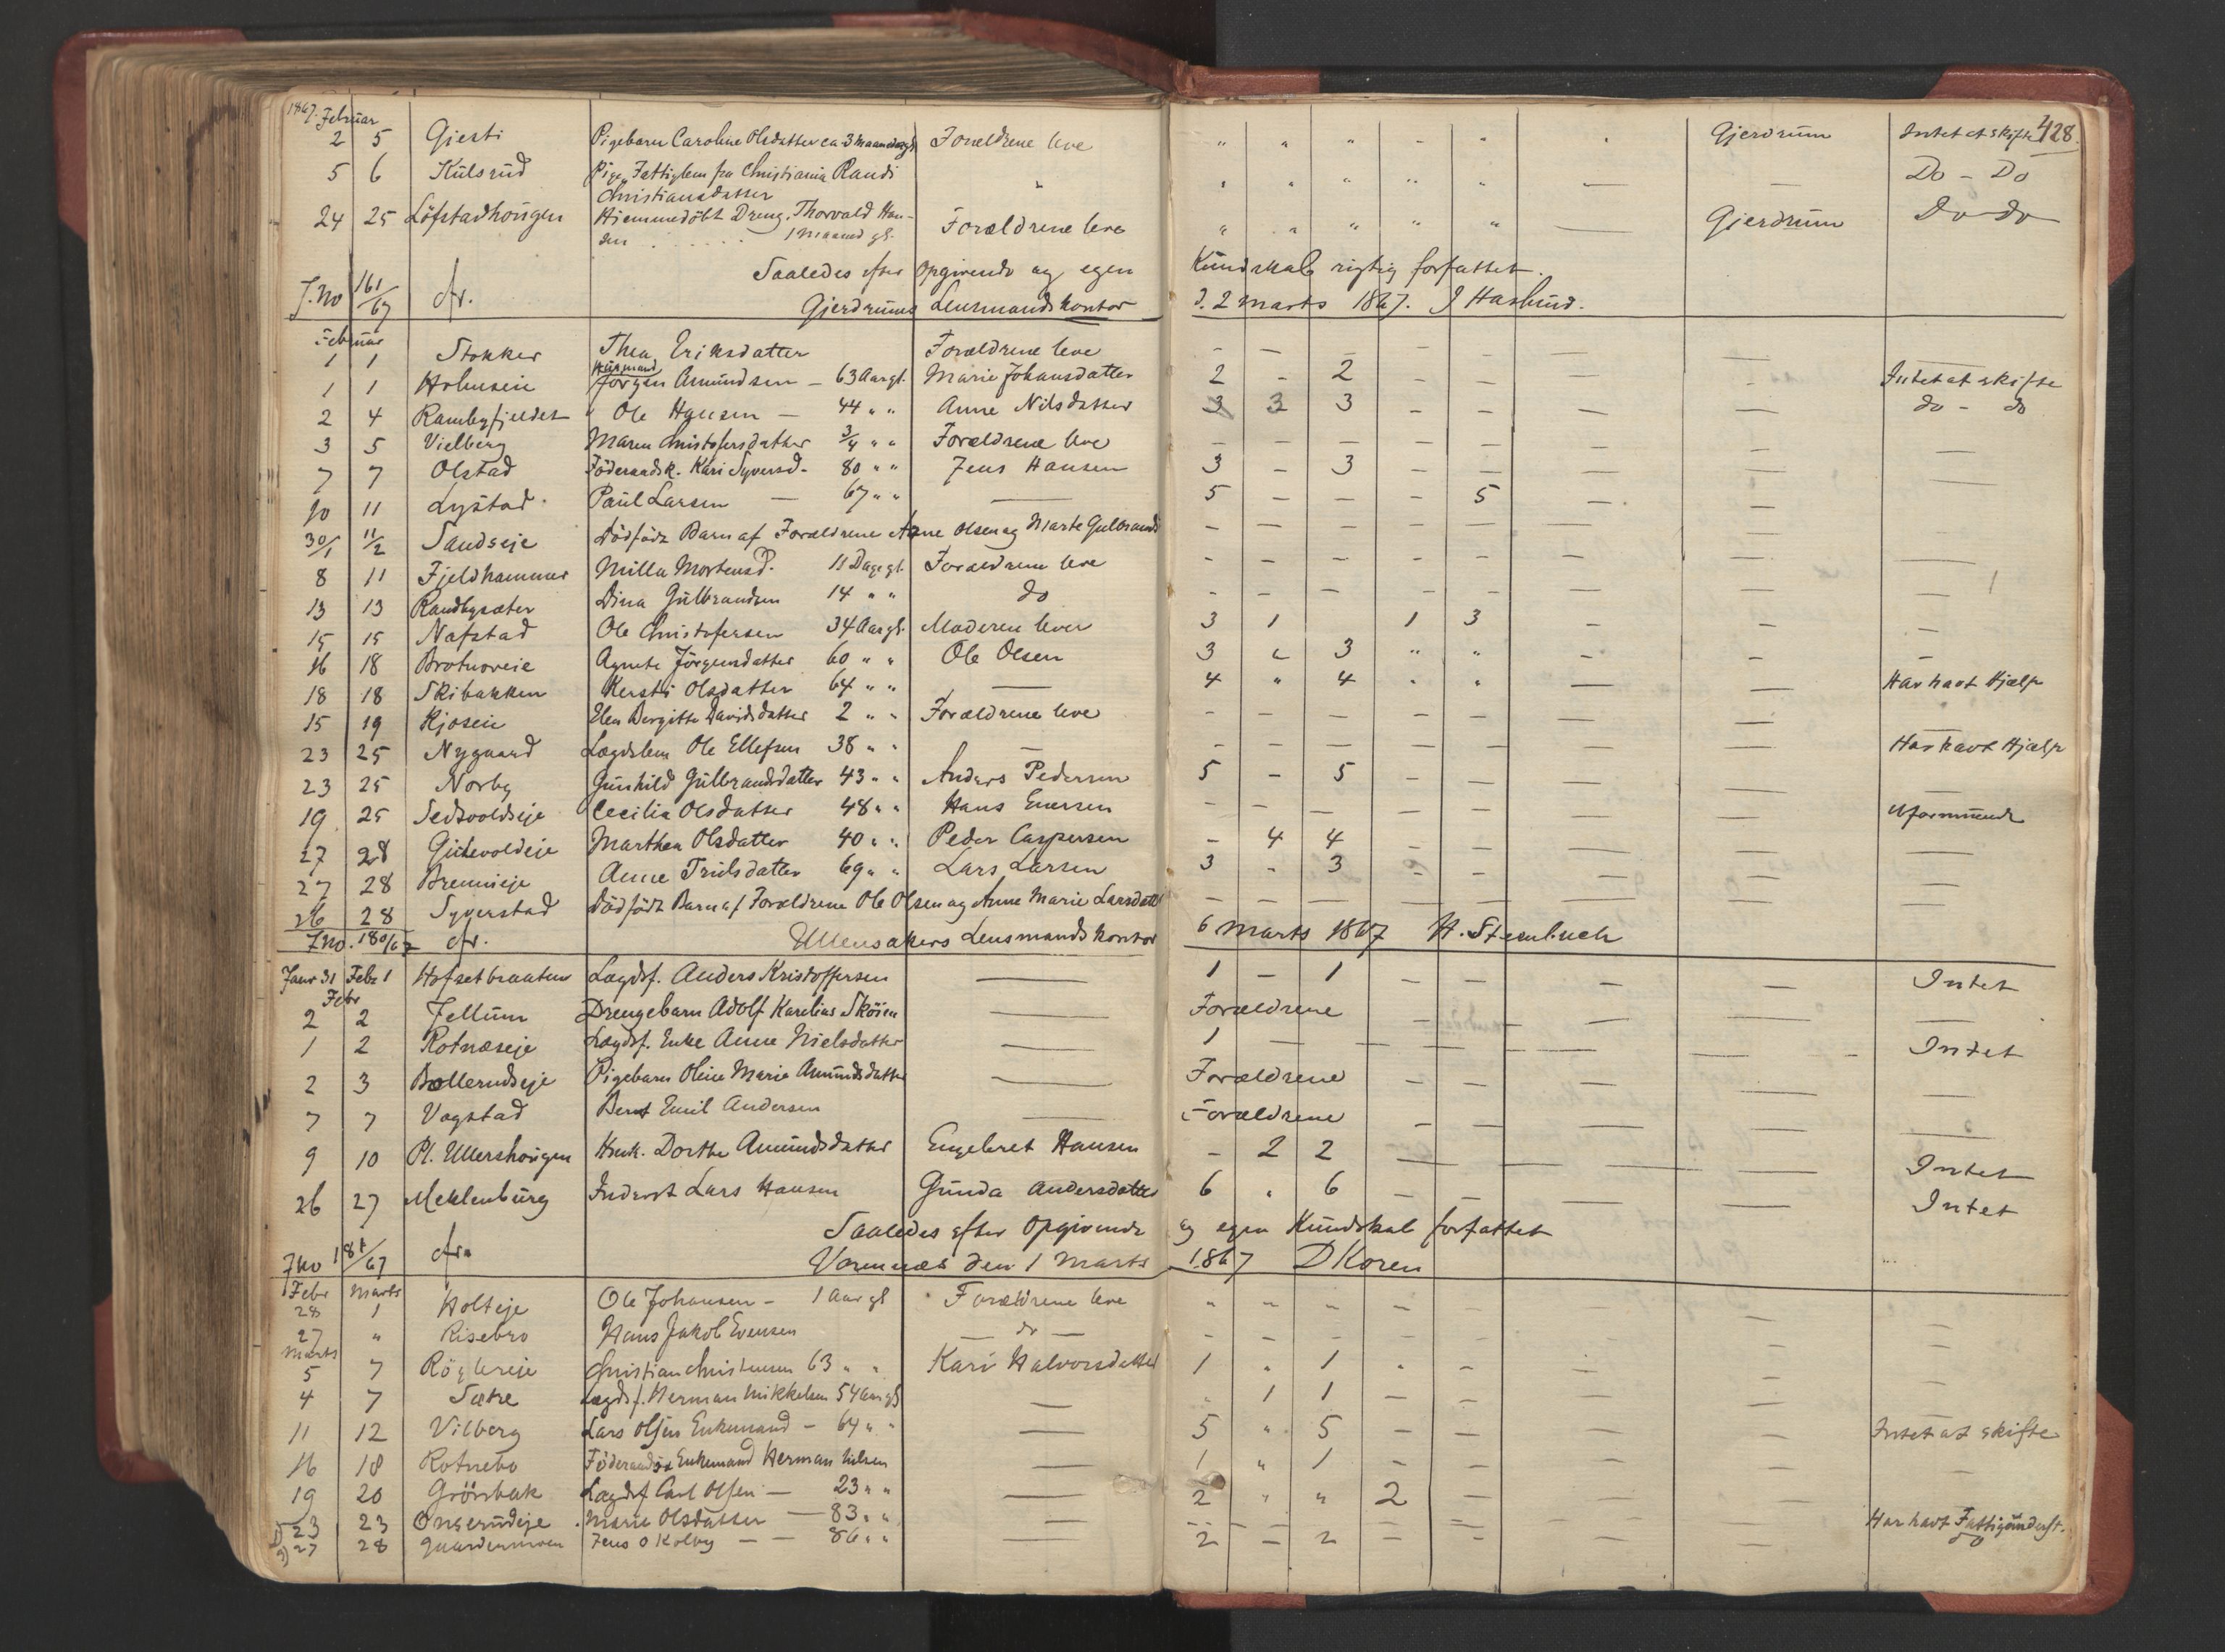 1867. Februar
428.
2 5 Gjesti Pigebarn Caroline Olsdatter ca 3 Maaneder gl Forældrene leve " " " - " " Gjerdrum Intet at skifte
5 6 Kulsrud Pige, Fattiglem fra Christiania Randi Christiansdatter " " " " " " — — Do - Do
24 25 Löfstadhougen Hjemmedöbt Dreng, Thorvald Han-
sen . . . . . . 1 Maaned gl. Forældrene leve " " " " " — Gjerdrum Do do
Saaledes efter Opgivende og egen Kundskab rigtig forfattet.
J.No 161/67 Afr. Gjerdrums Lensmandskontor d. 2 Marts 1867. J Hasbund.
Februar
1 1 Stokker Thea Eriksdatter Forældrene leve - — — - — — — —
1 1 Holmseie Huusmand Jörgen Amundsen — 63 Aar gl. Marie Johansdatter 2 - 2 — — — - Intet at skifte
2 4 Rambyfjeldet " Ole Hansen — 44 " " Anne Nilsdatter 3 3 3 - - — — do - do
3 5 Vilberg Maren Christofersdatter 3/4 " " Forældrene leve — — — — — — — —
7 7 Olstad Föderaadsk. Kari Syversd. 80 " " Jens Hansen 3 - 3 - — — — —
10 11 Lystad Paul Larsen — 67 " " — 5 - - - 5 — —
30/1 11/2 Sandseje Dödfödt Barn af Forældrene Arne Olsen og Marte Gulbrands — — — — — — — —
8 11 Fjeldhammer Milla Mortensd. 11 Dage gl. Forældrene leve - - — — — — — —
13 13 Randbysæter Dina Gulbrandsen 14 " " do - - - - - — — —
15 15 Nafstad Ole Christofersen 34 Aar gl. Moderen lever 3 1 1 3 — — —
16 18 Brotnoreie Agnete Jörgensdatter 60 " " Ole Olsen 3 " 3 " " — — —
18 18 Skibakken Kersti Olsdatter 64 " " — 4 " 4 " " — — Har havt Hjælp
15 19 Kjoseie Elen Birgitte Davidsdatter 2 " " Forældrene leve - — — — — — — —
23 25 Nygaard Lægdslem Ole Ellefsen 38 " " — - — — — — — — Har havt Hjælp
23 25 Norby Gunhild Gulbrandsdatter 43 " " Anders Pedersen 5 - 5 — — — — —
19 25 Cecilia Olsdatter 48 " " Hans Enersen - — — — — — — Uformuende
27 28 Marthea Olsdatter 40 " " Peder Caspersen - 4 4 — — — — —
27 28 Brennieje Anne Trulsdatter 69 " " Lars Larsen 3 - 3 - - — — —
26 28 Syverstad Dödfödt Barn af Forældrene Ole Olsen og Anne Marie Larsdatt — — — — — — — —
J No. 180/67 Afr. Ullensakers Lensmandskontor 6 Marts 1867 H.
Janr 31 Febr 1 Hofsetbraaten Lægdsf. Anders Kristoffersen — 1 - 1 — — — — Intet
Febr
2 2 Jellum Drengebarn Adolf Karelius Sköien — Forældrene - — — — —
1 2 Rotnæseje Lægdsf. Enke Anne Nielsdatter — 1 — — — — — — Intet
2 3 Bollerudseje Pigebarn Oline Marie Amundsdatter — Forældrene — — — — —
7 7 Vogstad Bernt Emil Andersen — Forældrene - — — — —
9 10 Pl. Ullershougen Huusk. Dorthe Amundsdatter Engebret Hansen - 2 2 — — — — Intet
26 27 Meklenburg Inderst Lars Hansen Gunda Andersdatter 6 " 6 — — — — Intet
Saaledes efter Opgivende og egen Kundskab forfattet
J No 181/67 Afr. Vormnæs den 1 Marts 1867 D Koren
Febr Marts
28 1 Holteje Ole Johansen — 1 Aar gl Forældrene leve " — — — — — — —
27 " Risebro Hans Jakob Evensen — do — - — — — — — — —
Marts
5 7 Christian Christensen 63 " " Kari Halvorsdatter 1 " 1 " — — — —
4 7 Sætre Lægdsf. Herman Mikkelsen 54 Aar gl — " 1 1 — — — — —
11 12 Vilberg Lars Olsen Enkemand — 64 " " — 5 " 5 — — — — Intet at skifte
16 18 Rotnebo Enkemand Herman Nilsen — 1 " 1 — — — — —
19 20 Grönbak Lægdsf Carl Olsen — 23 " " — 2 " " 2 — — — —
23 23 Ongerudeje Marie Olsdatter — 83 " " — — — — — — — — Har havt Fattigunderst.
27 28 Jens O Kolby — 86 " " — 2 — 2 — — — — do